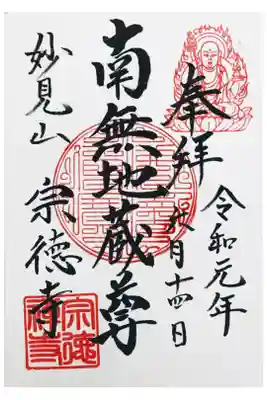 奉拝
令和元年
月十四日
南無地蔵尊
妙見山
宗徳寺